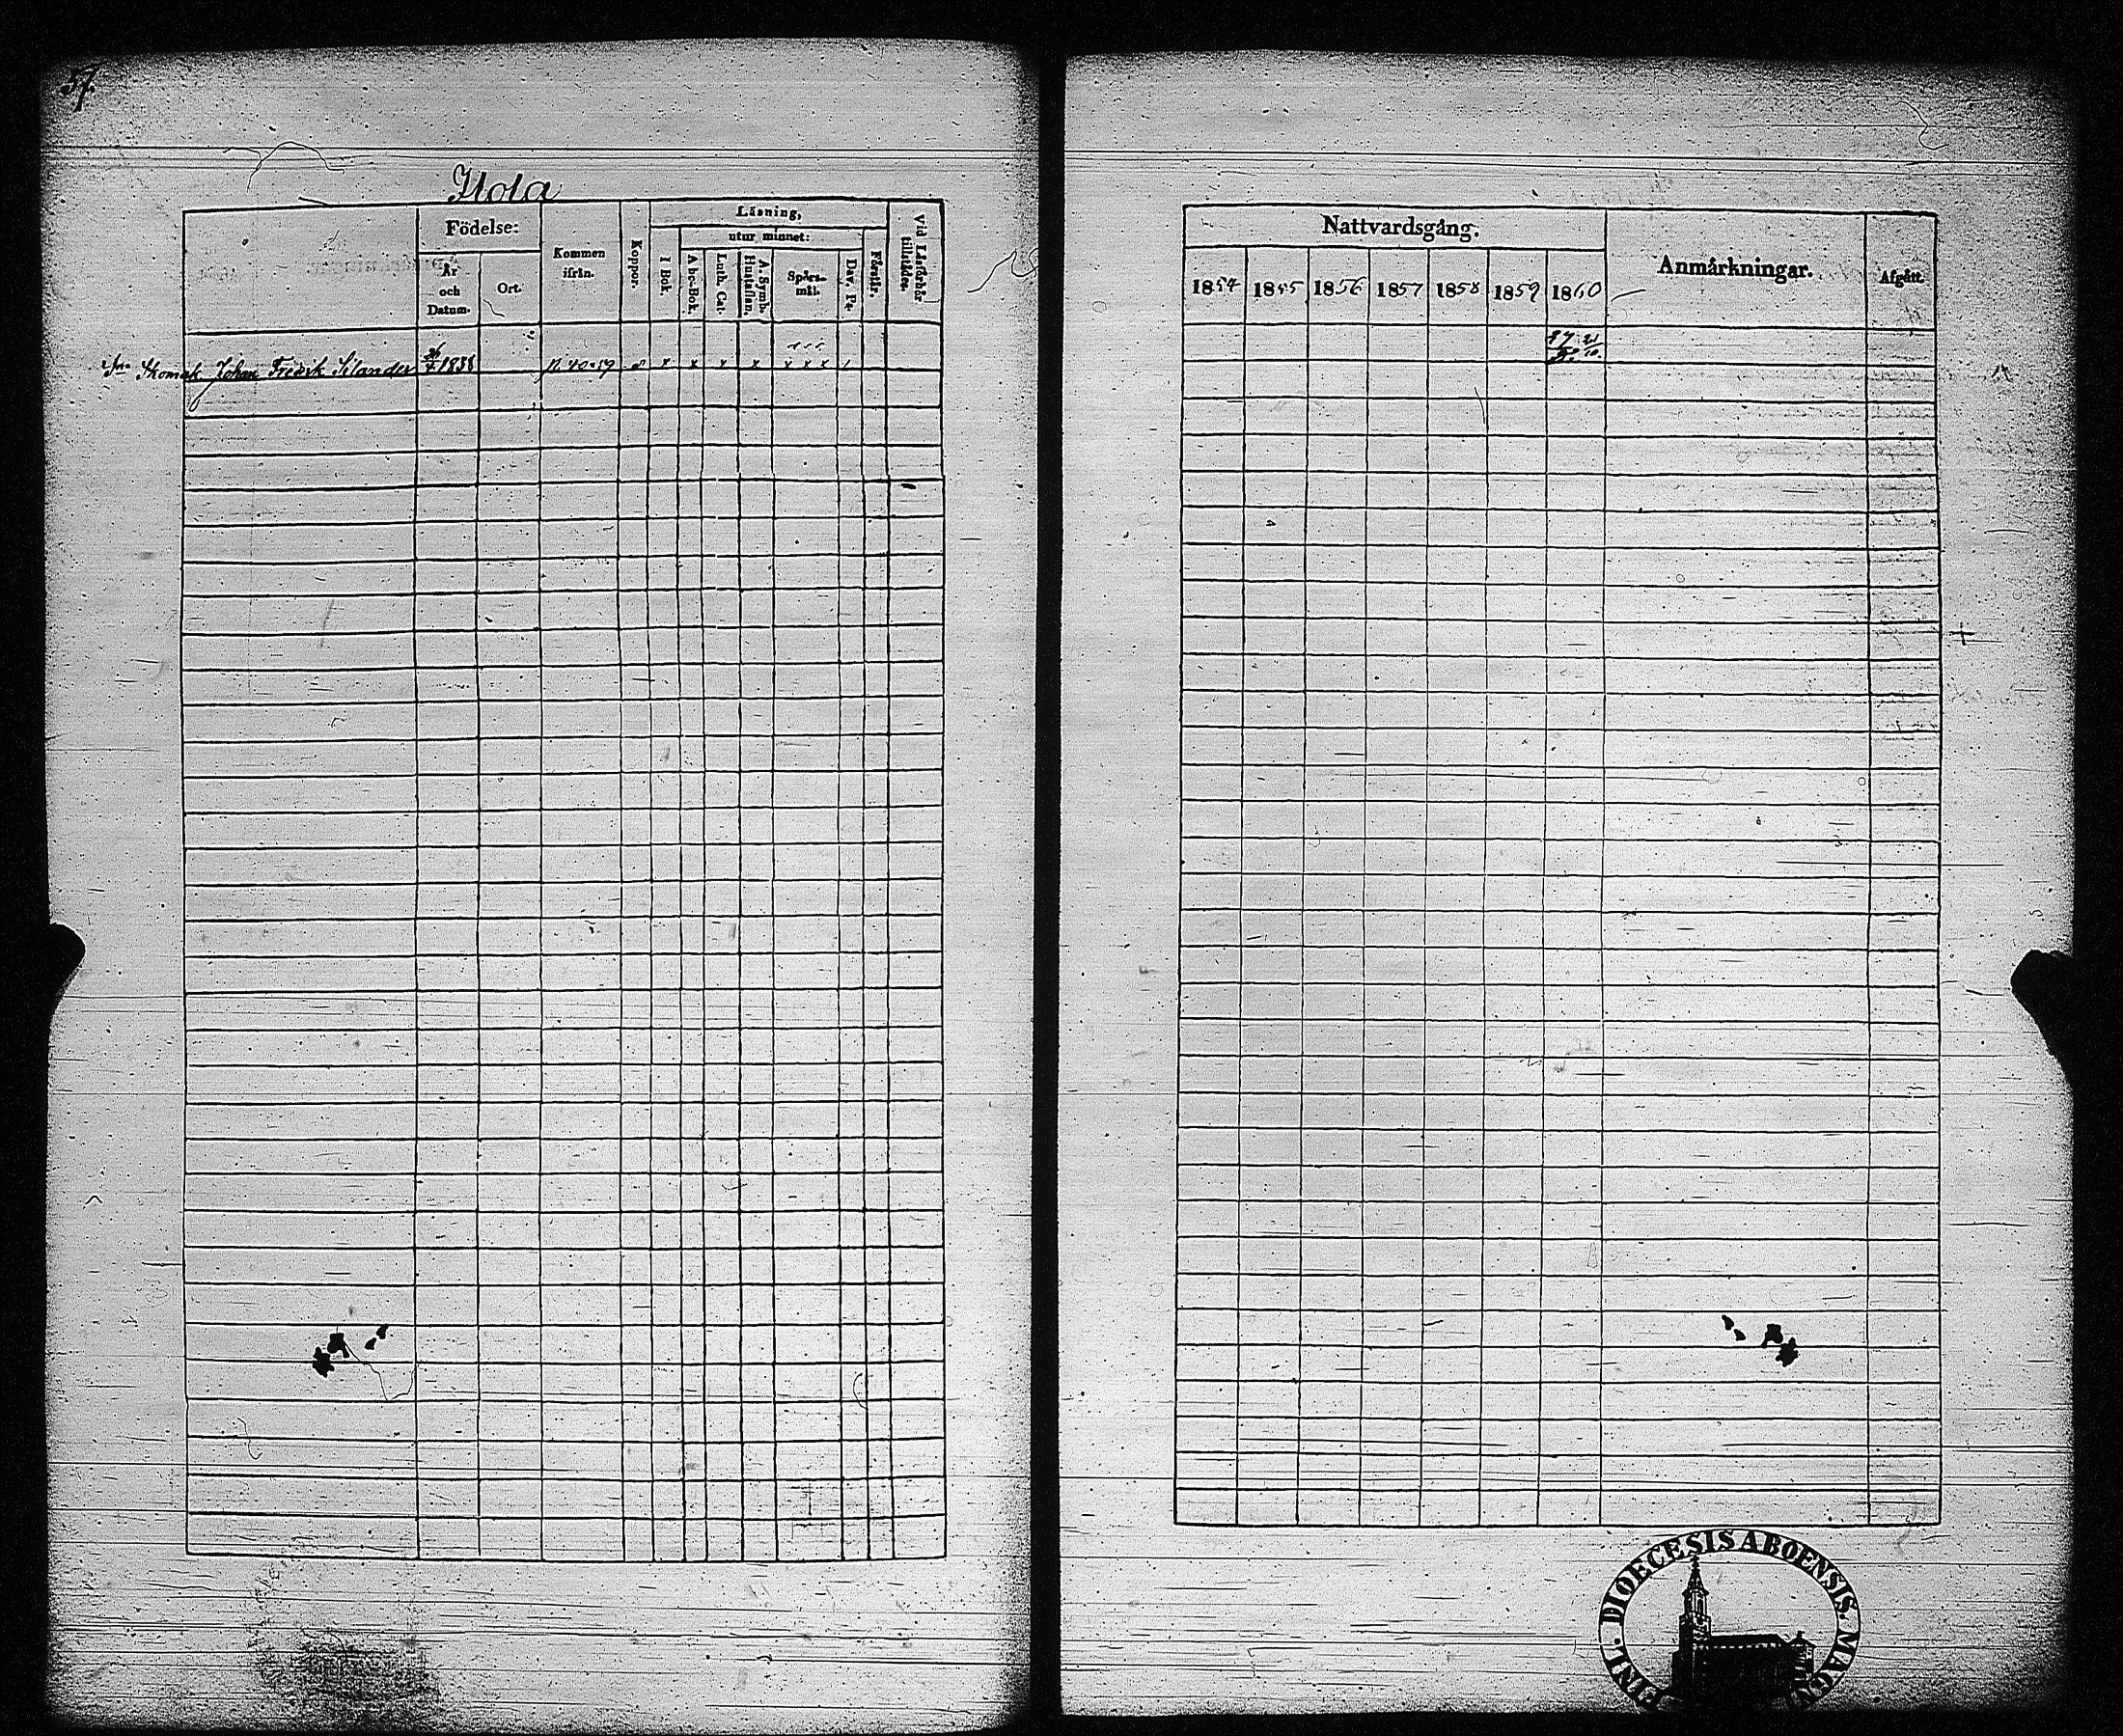 57.
Födelse:
År
och
Datum.
Ort.
Kommen
ifrån.
Koppor.
Läsning,
utur minnet:
I Bok.
A bc-Bok.
Luth. Cat.
A. Symb.
Hustaflan.
Spörs-
mål.
Dav. Ps.
Förstår.
Vid Läsförhör
tillstädes.
Skomak. Johan Fredrik Silander 1838 p. 40 x x x x x x x
Nattvardsgång.
1854 1855 1856 1857 1858 1859 1860
Anmärkningar.
Afgått.
FINL. DIOECESIS ABOENSIS. MAGN